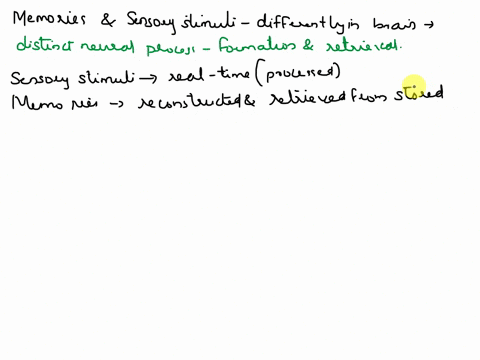 Memories & Sensory stimuli - differently in brain →
distinct neural process - formation & retrieval.
Sensory stimuli → real-time (processed)
Memories → reconstructed & retrieved from stored